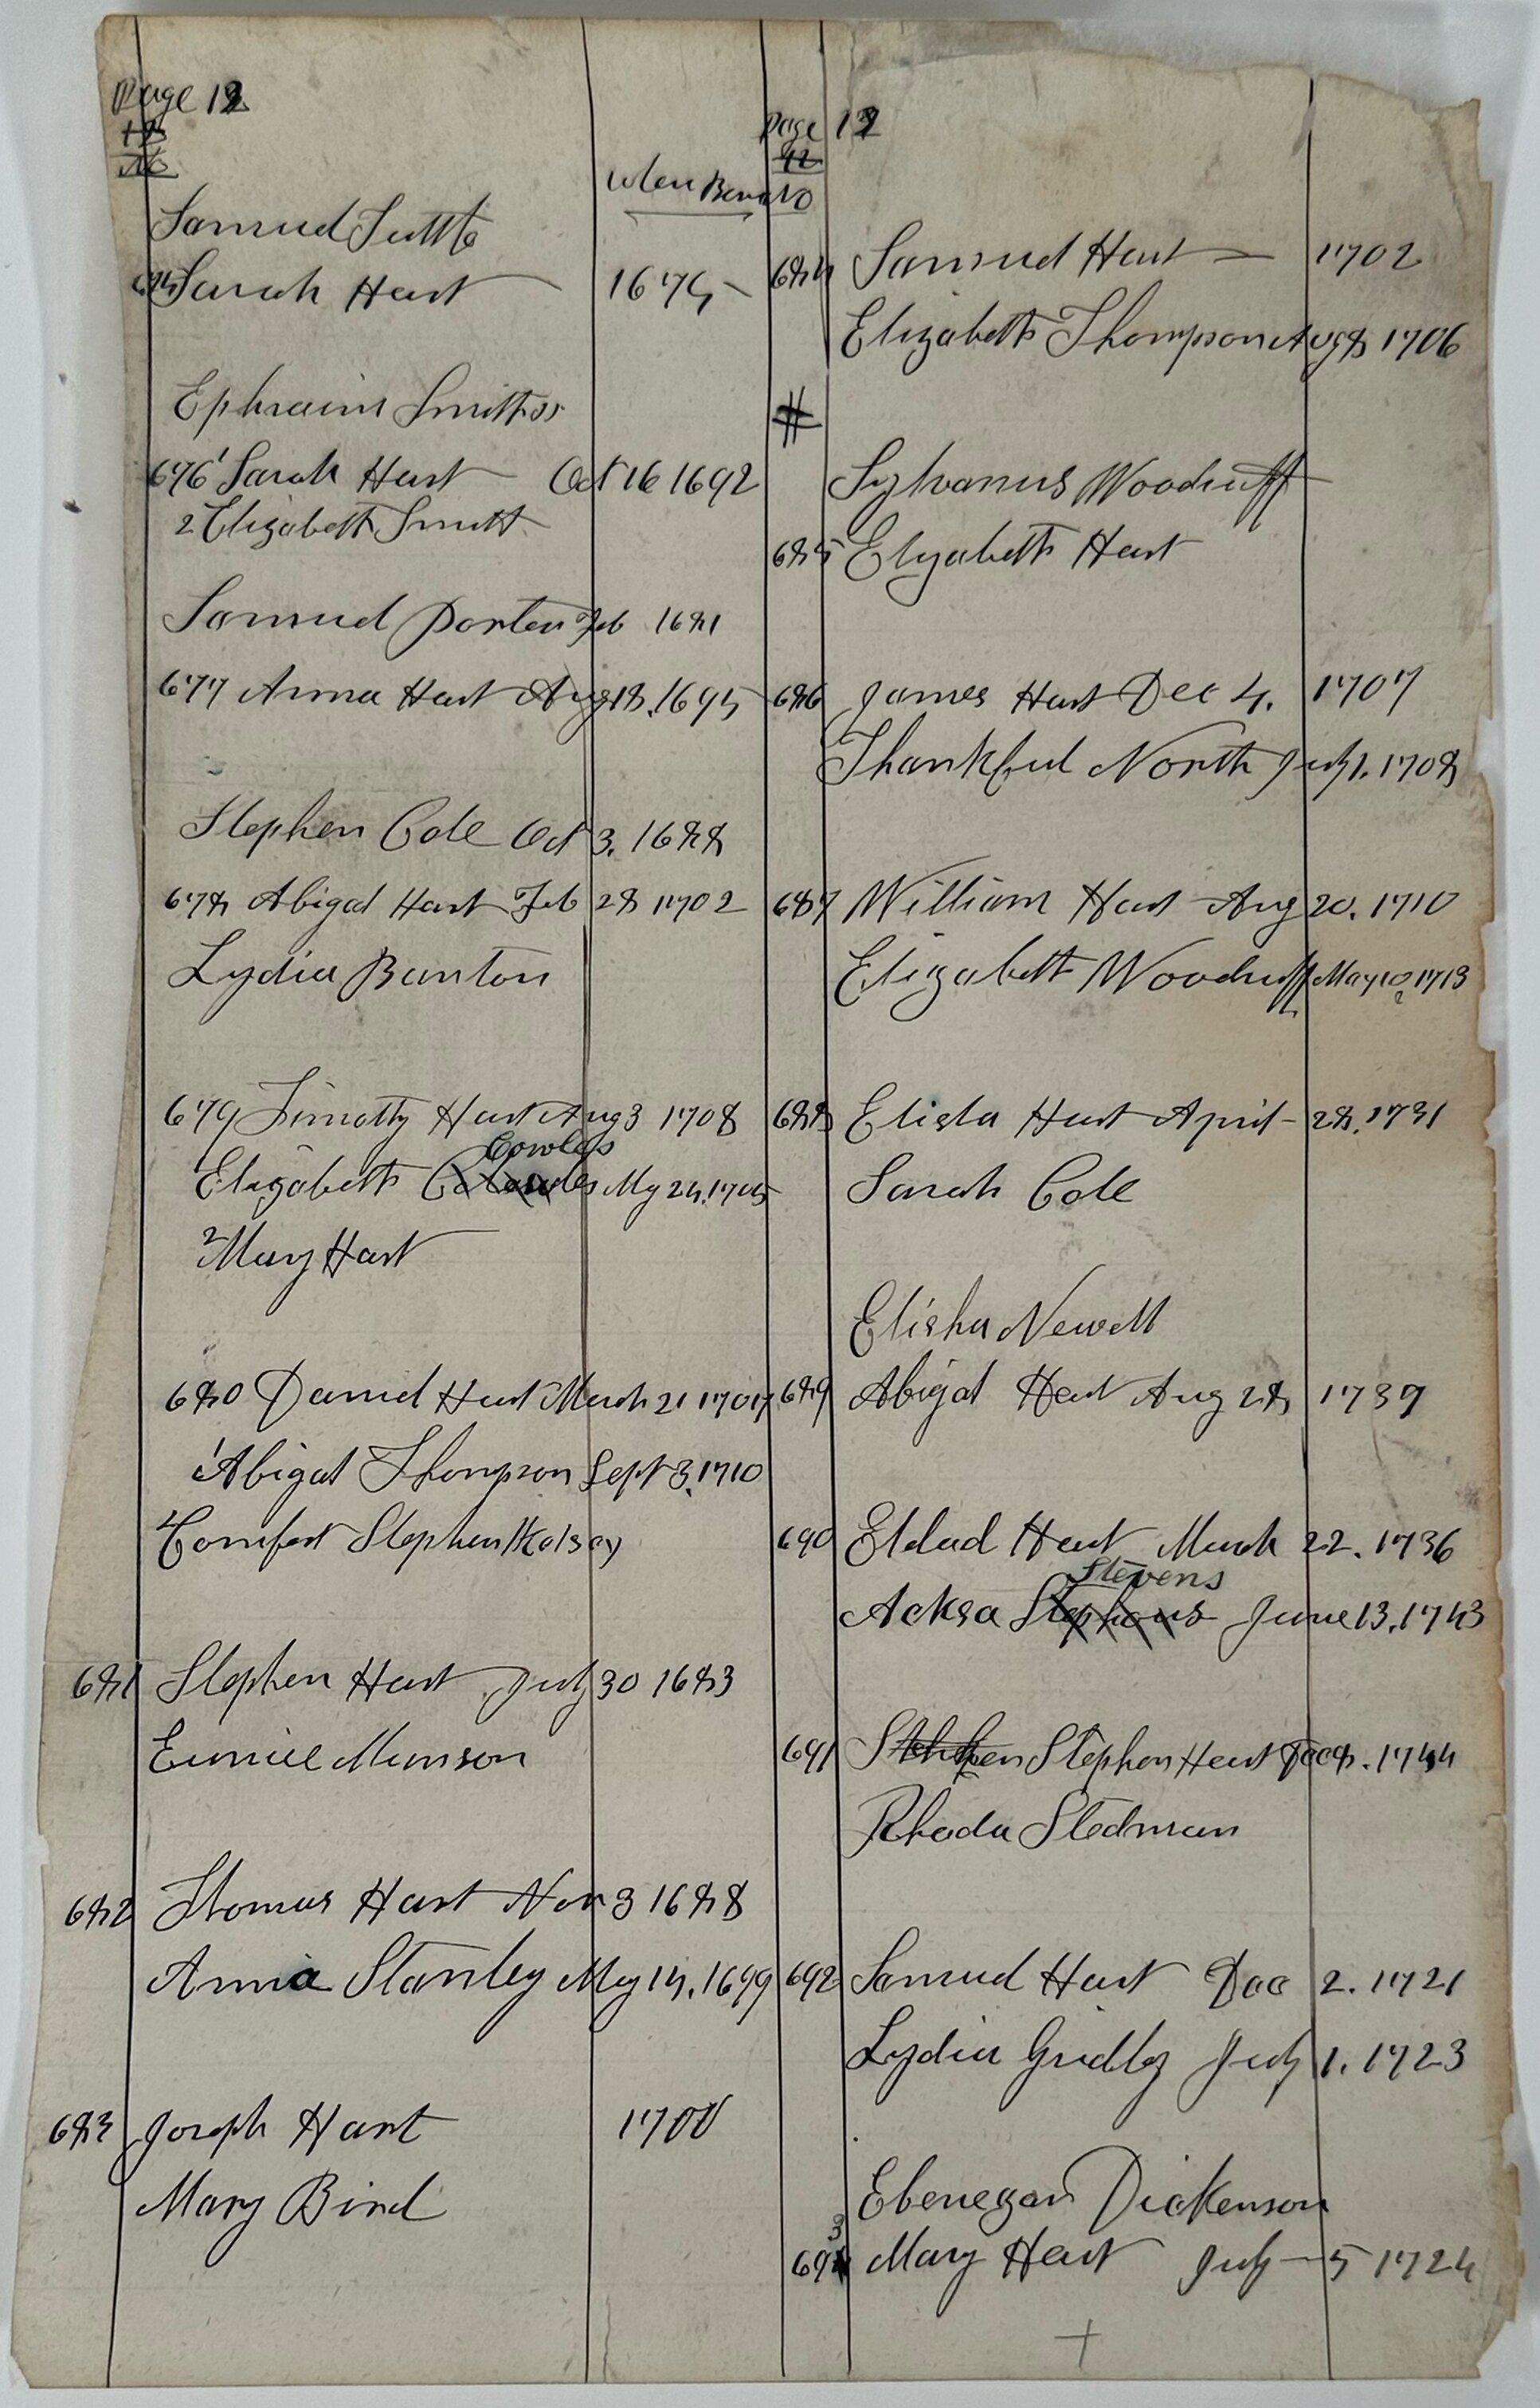 Page 12
No
When Born
Samuel Tuttle
Sarah Hart 1675
Ephraim Smith
676 1 Sarah Hart Oct 16 1692
2 Elizabeth Smith
Samuel Porter Feb 1681
677 Anna Hart Aug 18. 1695
Stephen Cole Oct 3. 1688
678 Abigal Hart Feb 28 1702
Lydia Banton
679 Timothy Hart Aug 3 1708
Cowles
Elizabeth My 24. 1705
2 Mary Hart
680 Daniel Hart March 21 1707
1 Abigal Thompson Sept 3. 1710
2 Comfort Stephen Kelsey
681 Stephen Hart July 30 1683
Eunice Munson
682 Thomas Hart Nov 3 1688
Anna Stanley My 14. 1699
683 Joseph Hart 1700
Mary Bird
Page 12
42
No
684 Samuel Hart 1702
Elizabeth Thompson Aug 8 1706
#
Sylvanus Woodruff
685 Elizabeth Hart
686 James Hart Dec 4. 1707
Thankful North July 1. 1708
687 William Hart Aug 20. 1710
Elizabeth Woodruff May 10, 1713
688 Elisha Hart April 28. 1731
Sarah Cole
Elisha Newell
689 Abigal Hart Aug 28 1739
690 Eldad Hart March 22. 1736
Stevens
Acksa Stephens June 13. 1743
691 Stephen Hart Dec 8. 1744
Rhoda Stedman
692 Samuel Hart Dec 2. 1721
Lydia Gridley July 1. 1723
Ebenezar Dickenson
693 Mary Hart July 5 1724